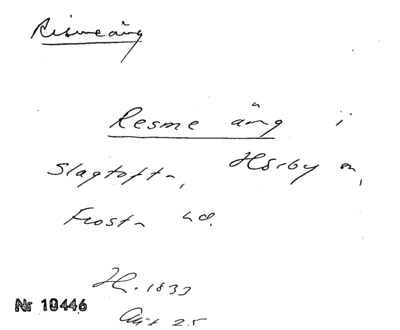 Rismeäng
Resme äng i
Slagtofta, Hörby sn,
Frosta hd.
H. 1833
Nr 10446
25